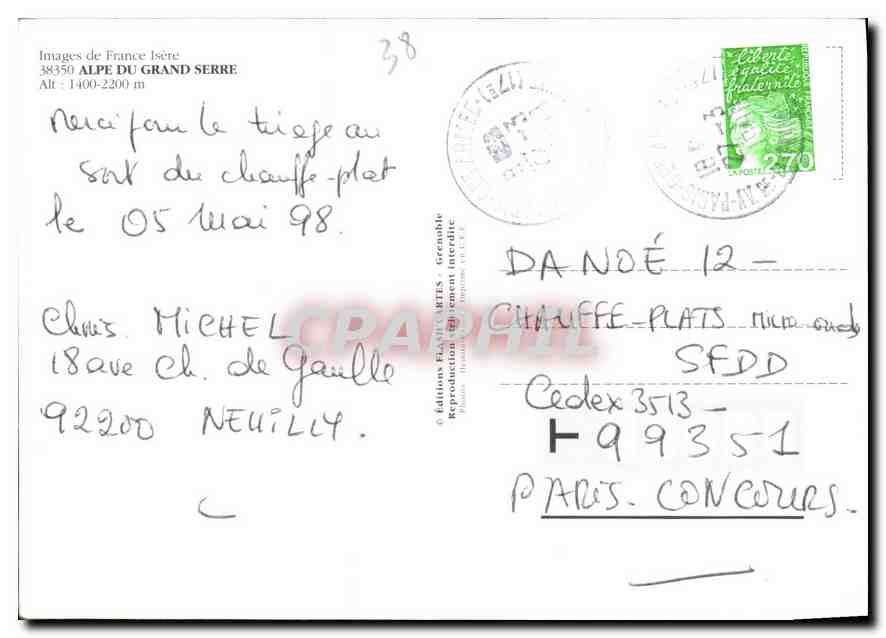 Images de France Isère
38350 ALPE DU GRAND SERRE
Alt : 1400-2200 m
38
Merci pour le tirage au
sort du chauffe-plat
le 05 Mai 98.
Chris MICHEL
18 ave Ch. de Gaulle
92200 NEUILLY.
© Éditions FLASH CARTES - Grenoble
Reproduction strictement interdite
liberté
égalité
fraternité
REPUBLIQUE FRANÇAISE
LA POSTE
2,70
DANOÉ 12 -
CHAUFFE-PLATS MICRO onde
SFDD
Cedex 3513 -
T 99351
PARIS-CONCOURS.
CPAPHIL